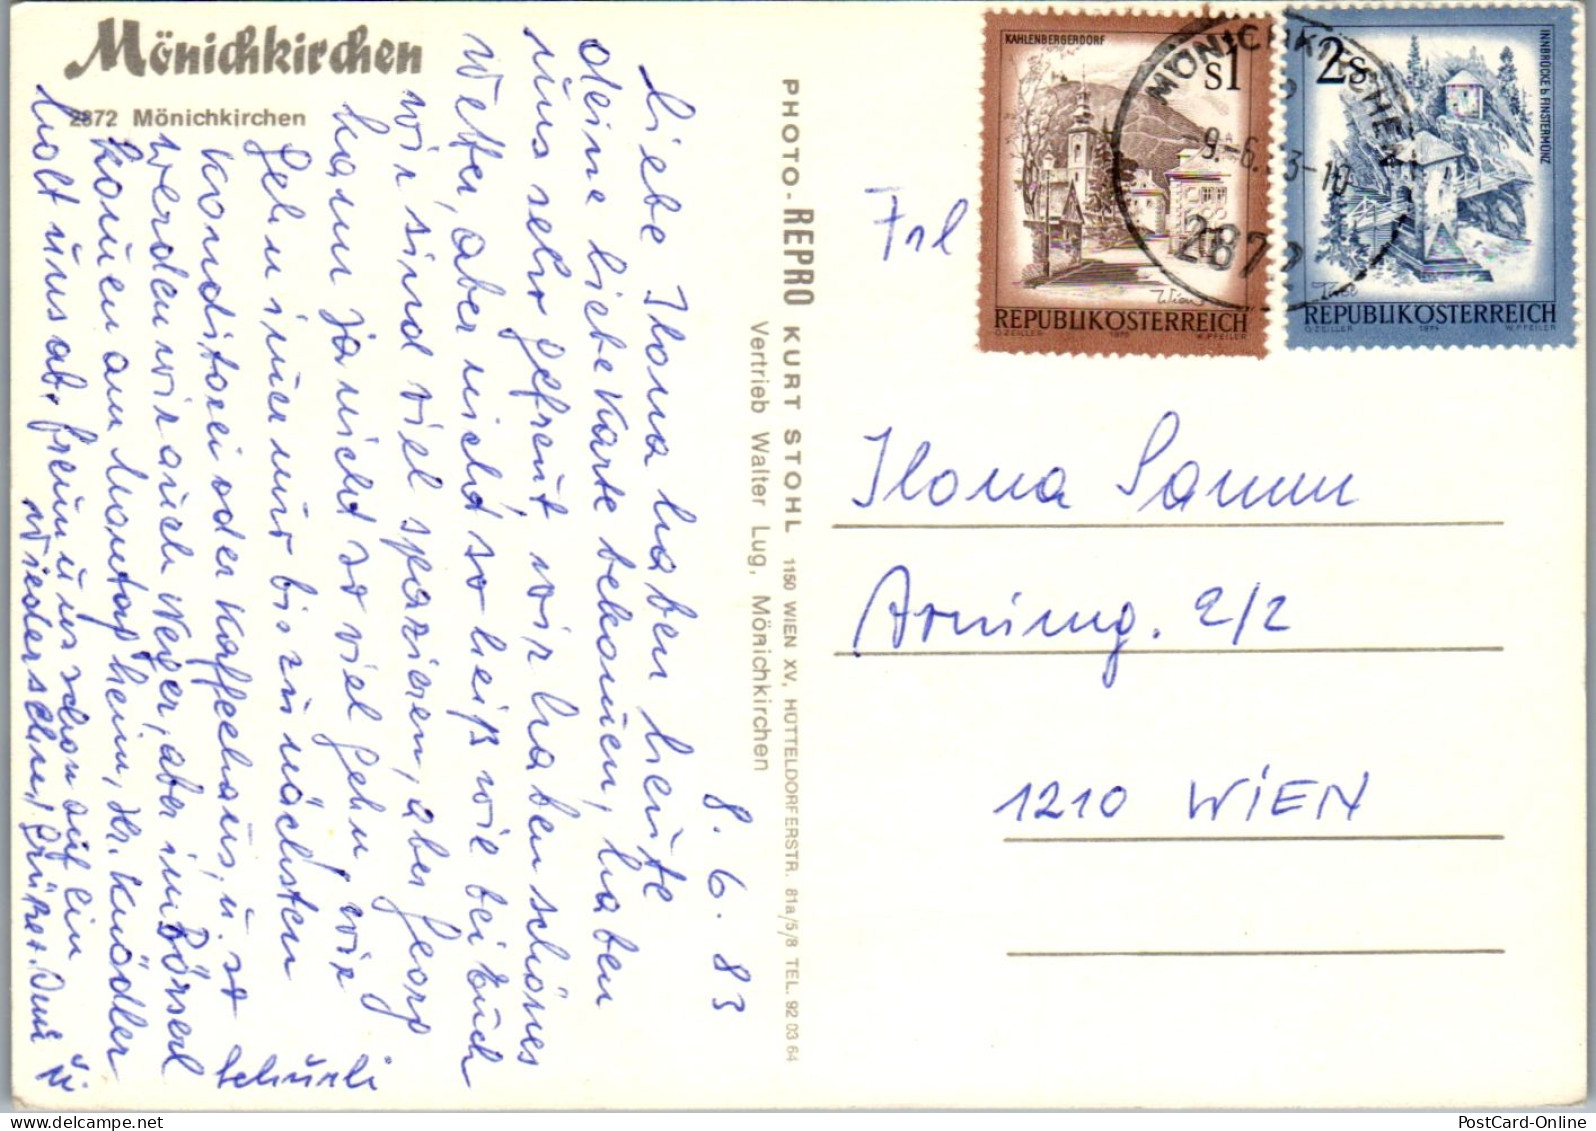 Mönichkirchen
2872 Mönichkirchen
8. 6. 83
Liebe Ilona haben heute
deine liebe Karte bekommen, haben
uns sehr gefreut, wir haben schönes
Wetter, aber nicht so heiß wie bei Euch
wir sind viel spazieren, aber Georg
kann ja nicht so viel gehn, wir
gehn immer nur bis zur nächsten
Konditorei oder Kaffeehaus, u. so
werden wir auch Neger, aber im Börserl
kommen am Montag heim, Hr. Knödler
holt uns ab, freun uns schon auf ein
Wiedersehn, Grüße
Schurli
PHOTO-REPRO KURT STOHL 1150 WIEN XV, HÜTTELDORFERSTR. 81a/5/8 TEL. 92 03 64
Vertrieb Walter Lug, Mönichkirchen
KAHLENBERGERDORF
S1
Wien
REPUBLIK ÖSTERREICH
O.ZEILLER 1975 W.PFEILER
2S
INNBRÜCKE b FINSTERMÜNZ
Tirol
REPUBLIK ÖSTERREICH
O.ZEILLER 1974 W.PFEILER
MÖNICHKIRCHEN
-9.-6. 3-10
2872
Frl
Ilona
1210 WIEN
PostCard-Online